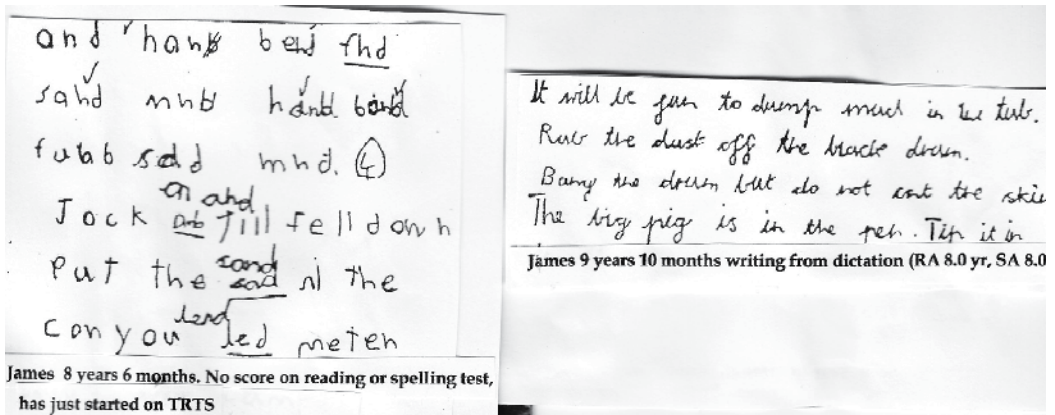 and hand bend fhd
sahd mnd hand band
fubb sdd mhd. 4
an and
Jock anb Jill fell down
sand
Put the sad ni the
lend
con you led meten
James 8 years 6 months. No score on reading or spelling test,
has just started on TRTS
It will be fun to dump mud in the tub.
Rub the dust off the black drum.
Bang the drum but do not cut the skin
The big pig is in the pen. Tip it in
James 9 years 10 months writing from dictation (RA 8.0 yr, SA 8.0